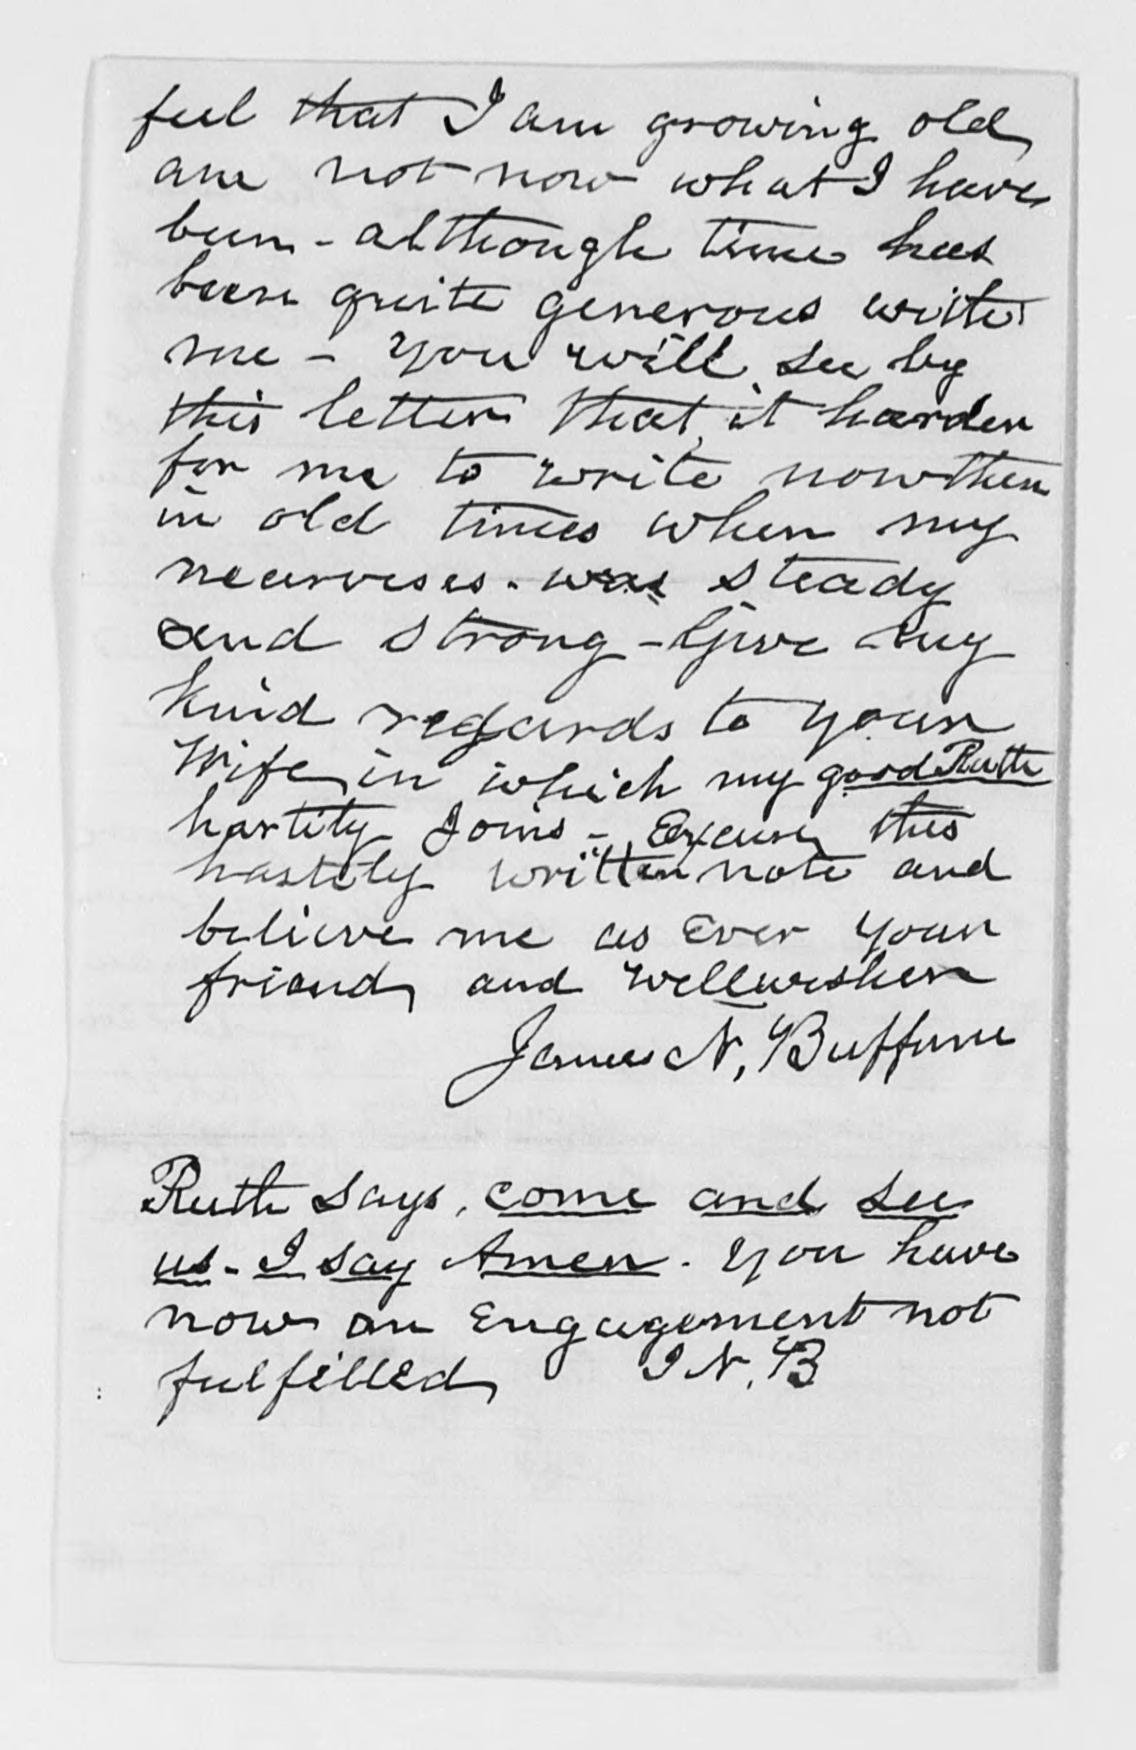 feel that I am growing old
am not now what I have
been - although time has
been quite generous with
me - You will see by
this letter that it harder
for me to write now then
in old times when my
nearveses. was steady
and strong - Give my
kind regards to your
Wife, in which my good Ruth
hartily Joins - Excuse this
hastily written note and
believe me as Ever your
friend, and wellwisher
James N, Buffum
Ruth says, come and see
us - I say Amen. You have
now an Engagement not
fulfilled, J N. B